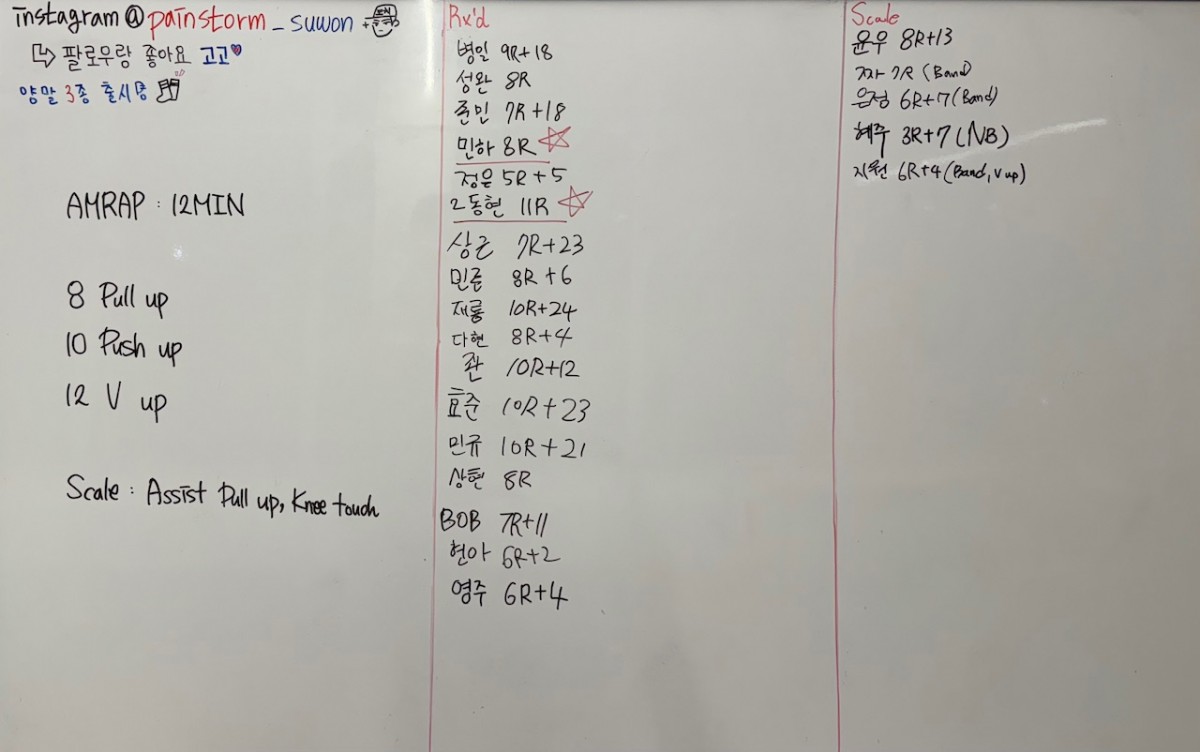 instagram@painstorm_suwon +
팔로우랑 좋아요 고고
양말 3종 출시중
AMRAP : 12MIN
8 Pull up
10 Push up
12 V up
Scale : Assist Pull up, Knee touch
Rx'd
병일 9R+18
성완 8R
준민 7R+18
민하 8R
정은 5R+5
2동현 11R
상근 7R+23
민준 8R+6
재룡 10R+24
다현 8R+4
관 10R+12
효준 10R+23
민규 10R+21
상현 8R
BOB 7R+11
현아 6R+2
영주 6R+4
Scale
윤우 8R+13
7R (Band)
은정 6R+7 (Band)
혜주 3R+7 (NB)
지원 6R+4 (Band, V up)